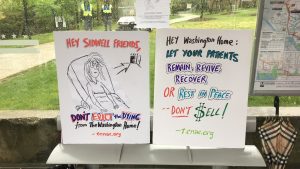 HEY SIDWELL FRIENDS,
DON'T EVICT the DYING
from The Washington Home!
HEY Washington Home:
LET YOUR PATIENTS
REMAIN, REVIVE,
RECOVER
OR REST IN PEACE
-- DON'T $ELL!